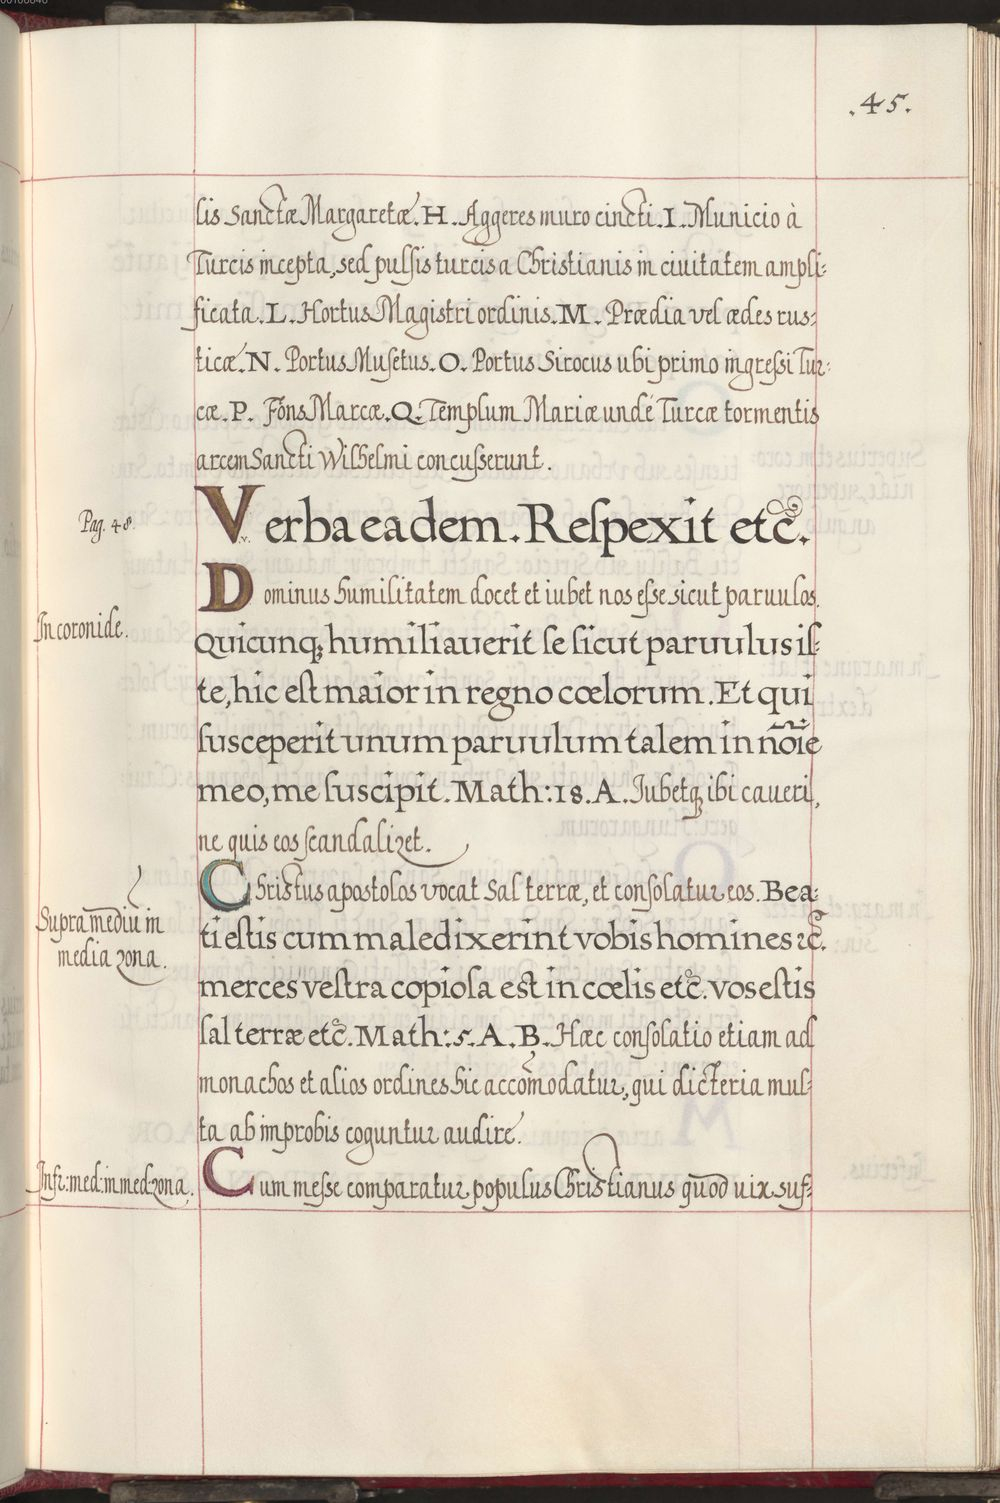 .45.
lis Sanctæ Margaretæ. H. Aggeres muro cincti. I. Municio à
Turcis incepta, sed pulsis turcis a Christianis in ciuitatem ampli:
ficata. L. Hortus Magistri ordinis. M. Prædia vel ædes rus:
ticæ. N. Portus Musetus. O. Portus Sirocus ubi primo ingressi Tur:
cæ. P. Fons Marcæ. Q. Templum Mariæ unde Turcæ tormentis
arcem Sancti Wilhelmi concusserunt.
Pag. 48.
Verba eadem. Respexit etc̃.
Dominus humilitatem docet et iubet nos esse sicut paruulos.
In coronide.
Quicunq; humiliauerit se sicut paruulus is:
te, hic est maior in regno cœlorum. Et qui
susceperit unum paruulum talem in nõie
meo, me suscipit. Math: 18. A. Iubetq; ibi caueri,
ne quis eos scandalizet.
Christus apostolos vocat Sal terræ, et consolatur eos. Bea:
Supra mediū in
media zona.
ti estis cum maledixerint vobis homines ⁊c̃.
merces vestra copiosa est in cœlis etc̃. vos estis
sal terræ etc̃. Math: 5. A. B. Hæc consolatio etiam ad
monachos et alios ordines hic accõmodatur, qui dicteria mul:
ta ab improbis coguntur audire.
Infr: med: in med: zona.
Cum messe comparatur populus Christianus quod uix suf: